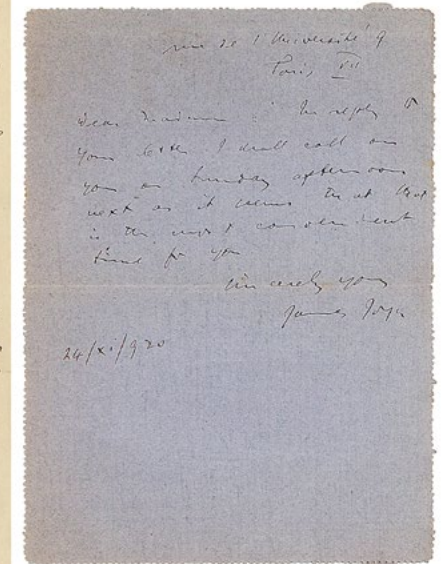 rue de l'Université 9
Paris VII
Dear Madame: In reply to
your letter I shall call on
you on Sunday afternoon
next as it seems that that
is the most convenient
time for you
Sincerely yours
James Joyce
24/xi/920